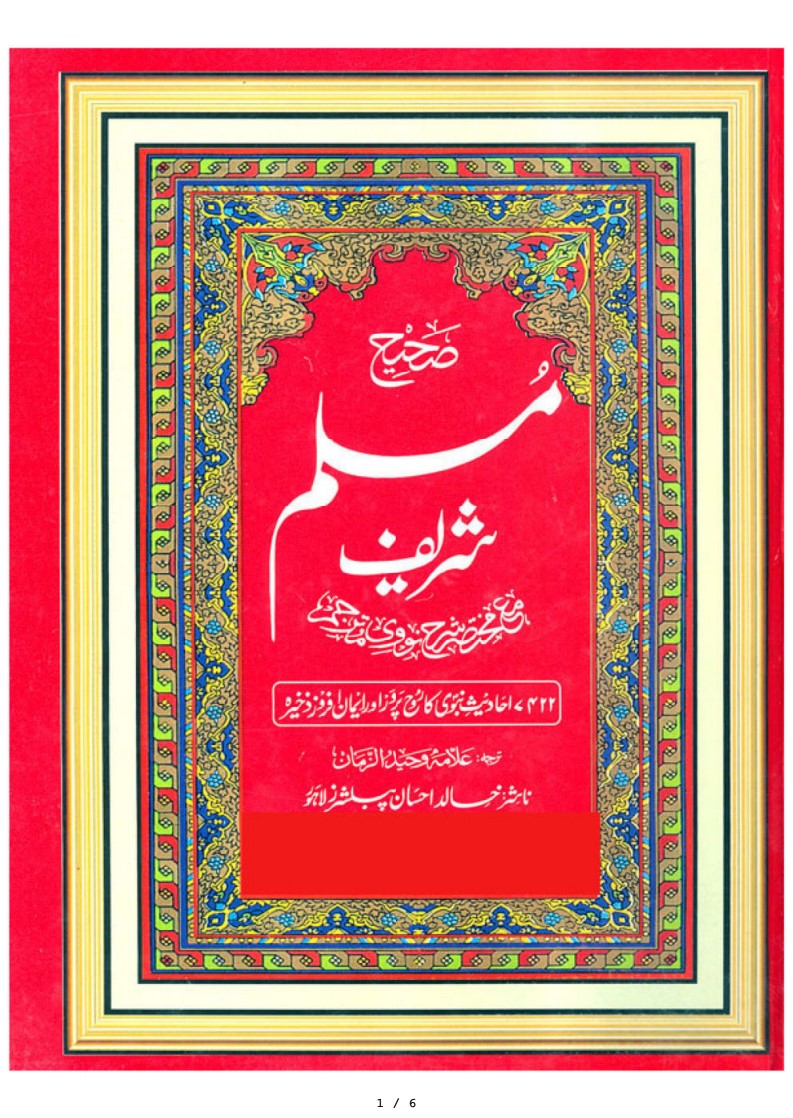 صحیح
مُسلم
شریف
مع مختصر شرح نووی مترجم
۷۴۲۲ احادیثِ نبویؐ کا رُوح پَرور اور ایمان افروز ذخیرہ
ترجمہ: علامہ وحید الزمان
ناشر: خالد احسان پبلشرز لاہور
1 / 6